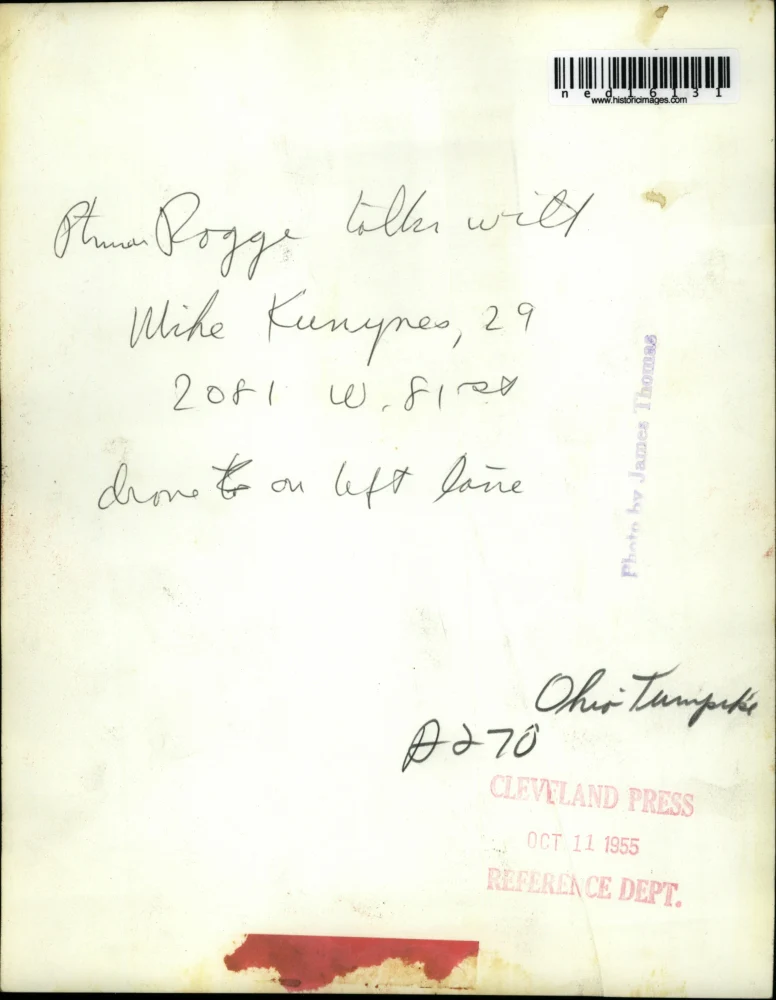 ned16131
www.historicimages.com
Ptrman Rogge talks with
Mike Kunynes, 29
2081 W. 81 st
drove on left lane
Photo by James Thomas
Ohio Turnpike
A270
CLEVELAND PRESS
OCT 11 1955
REFERENCE DEPT.